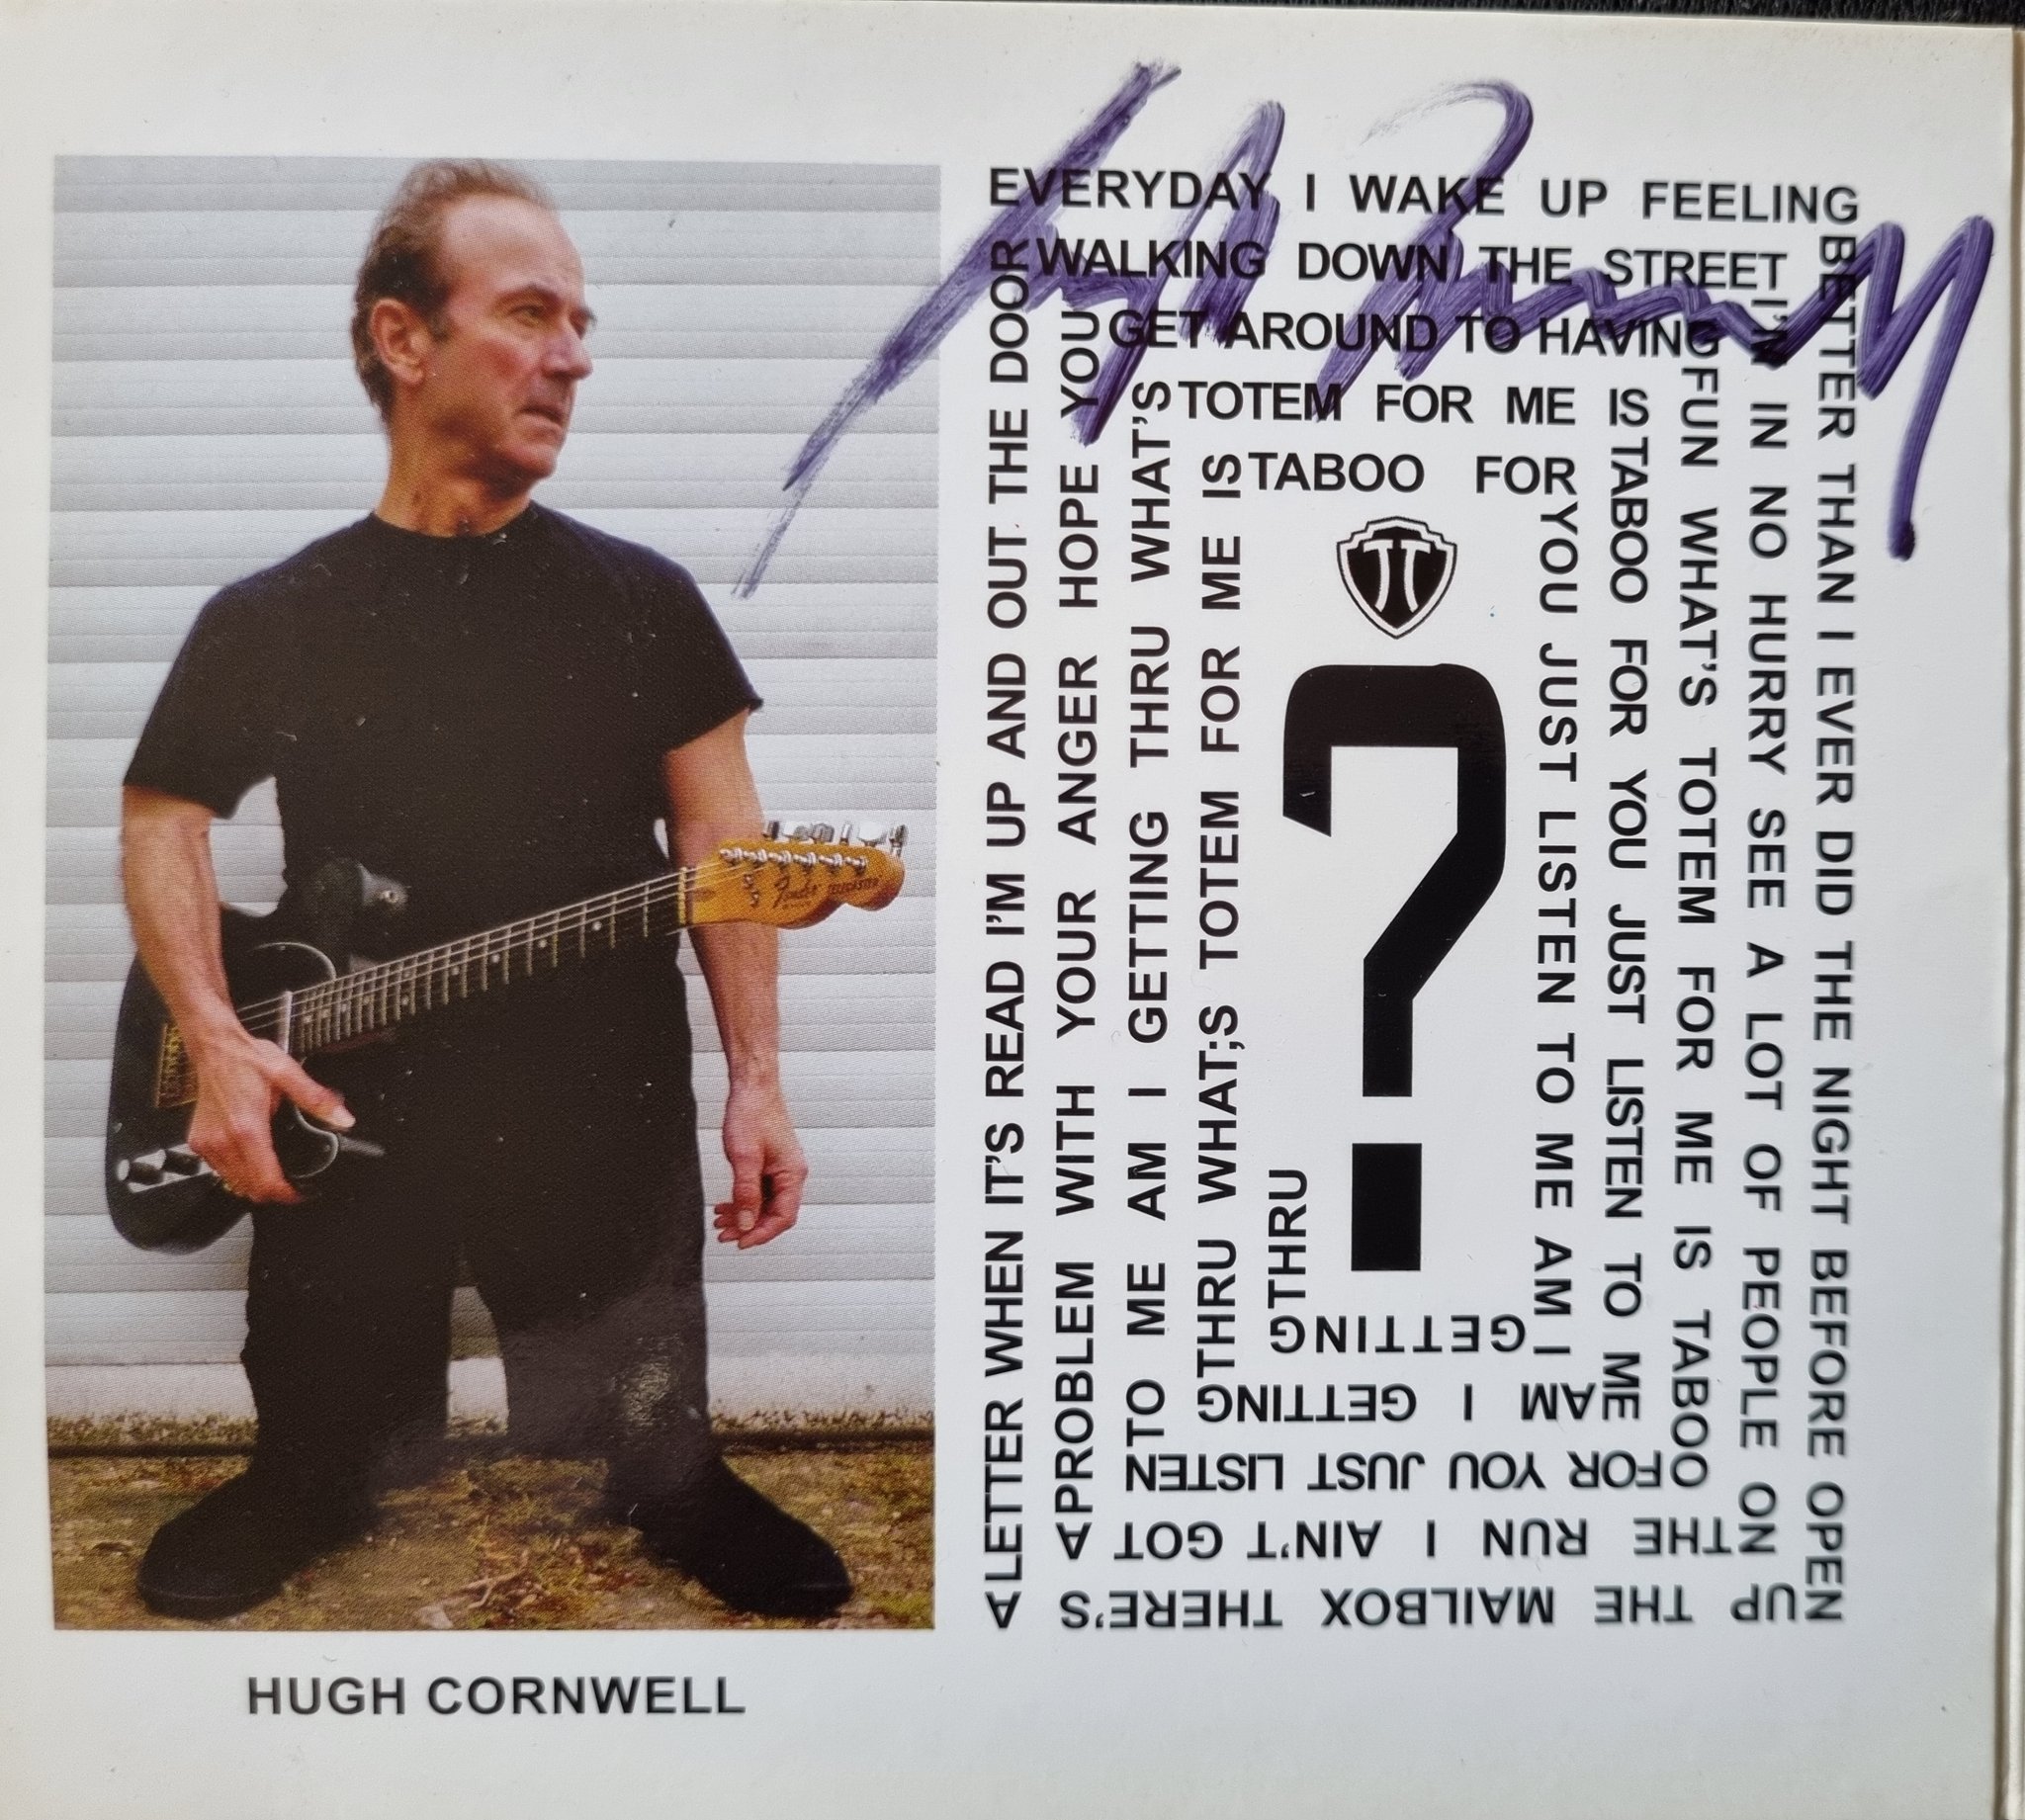 EVERYDAY I WAKE UP FEELING
BETTER THAN I EVER DID THE NIGHT BEFORE OPEN
UP THE MAILBOX THERE'S A
LETTER WHEN IT'S READ I'M UP AND OUT THE DOOR
WALKING DOWN THE STREET
I'M IN NO HURRY SEE A LOT OF PEOPLE ON
THE RUN I AIN'T GOT A
PROBLEM WITH YOUR ANGER HOPE YOU
GET AROUND TO HAVING
FUN WHAT'S TOTEM FOR ME IS TABOO
FOR YOU JUST LISTEN
TO ME AM I GETTING THRU WHAT'S
TOTEM FOR ME IS
TABOO FOR YOU JUST LISTEN TO ME
AM I GETTING
THRU WHAT;S TOTEM FOR ME IS
TABOO FOR
YOU JUST LISTEN TO ME AM I
GETTING
THRU
?
TT
Fender TELECASTER
HUGH CORNWELL